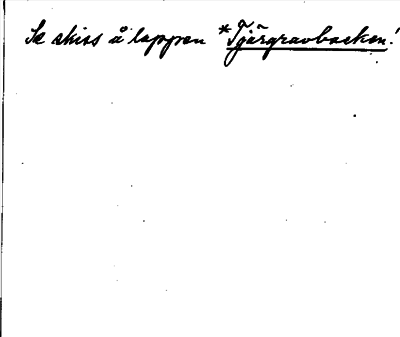 Se skiss å lappen *Tjärgravbacken!